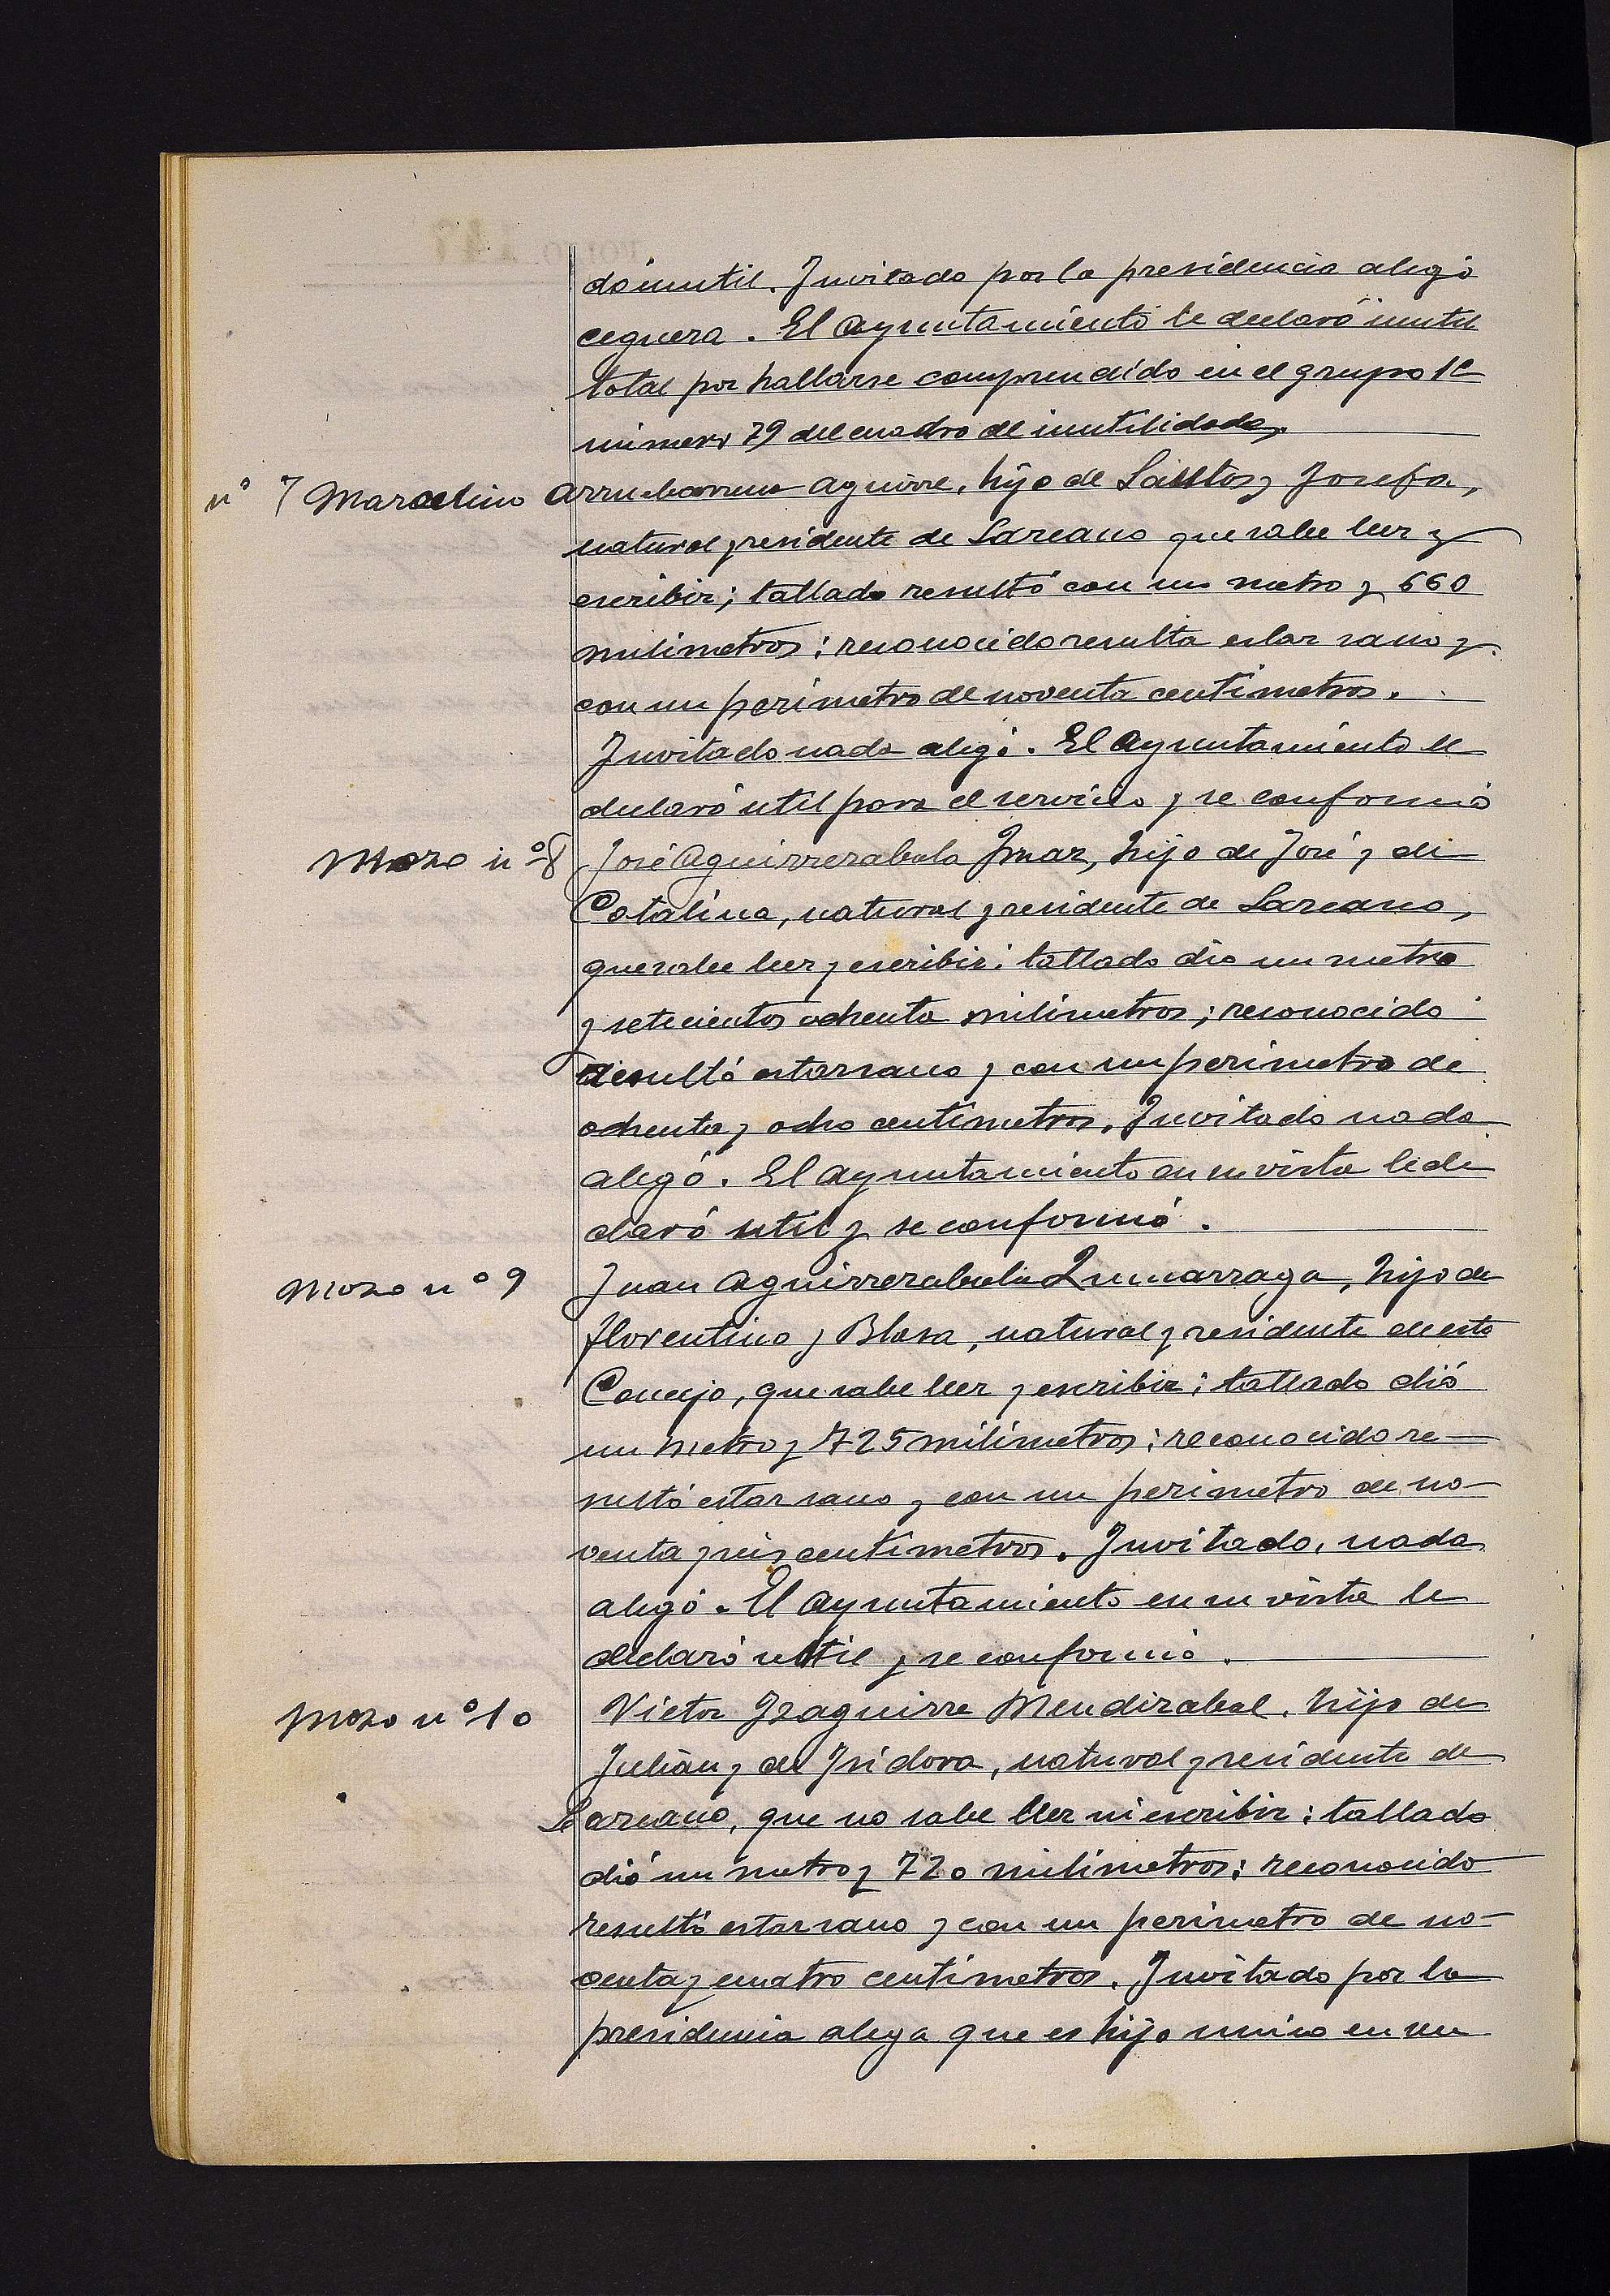 do inutil. Invitado por la presidencia alegó
ceguera. El Ayuntamiento le declaró inutil
total por hallarse comprendido en el grupo 1º
número 79 del cuadro de inutilidades.
nº 7 Marcelino Arrubarrena Aguirre, hijo de Santos y Josefa,
natural y residente de Larcano que sabe leer y
escribir; tallado resultó con un metro y 660
milimetros: reconocido resulta estar sano y
con un perímetro de noventa centímetros.
Invitado nada alegó. El Ayuntamiento le
declaró util para el servicio y se conformó
Mozo nº 8 José Aguirrezabala Imaz, hijo de José y de
Catalina, natural y residente de Lazcano,
que sabe leer y escribir: tallado dio un metro
y setecientos ochenta milimetros; reconocido
resultó estar sano y con un perímetro de
ochenta y ocho centimetros. Invitado nada
alegó. El Ayuntamiento en su vista le de
claró util y se conformó.
Mozo nº 9 Juan Aguirrezabala Zumarraga, hijo de
Florentino y Blasa, natural y residente de esto
Concejo, que sabe leer y escribir; tallado dió
un metro y 725 milimetros: reconocido re-
sultó estar sano y con un perimetro de no-
venta y seis centimetros. Invitado, nada
alegó. El Ayuntamiento en su vista le
declaró util y se conformó.
Mozo nº 10 Victor Izaguirre Mendizabal, hijo de
Julián y de Isidora, natural y residente de
Lazcano, que no sabe leer ni escribir: tallado
dió un metro y 720 milimetros: reconocido
resultó estar sano y con un perimetro de no-
venta y cuatro centimetros. Invitado por la
presidencia alega que es hijo unico en un